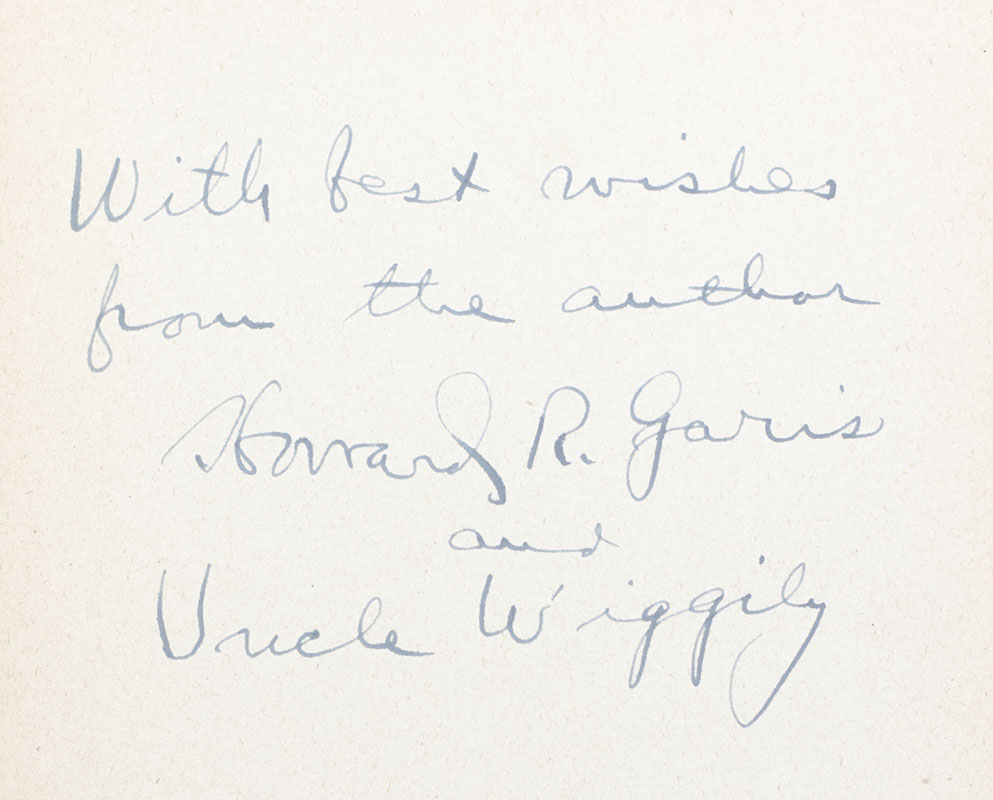 With best wishes
from the author
Howard R. Garis
and
Uncle Wiggily